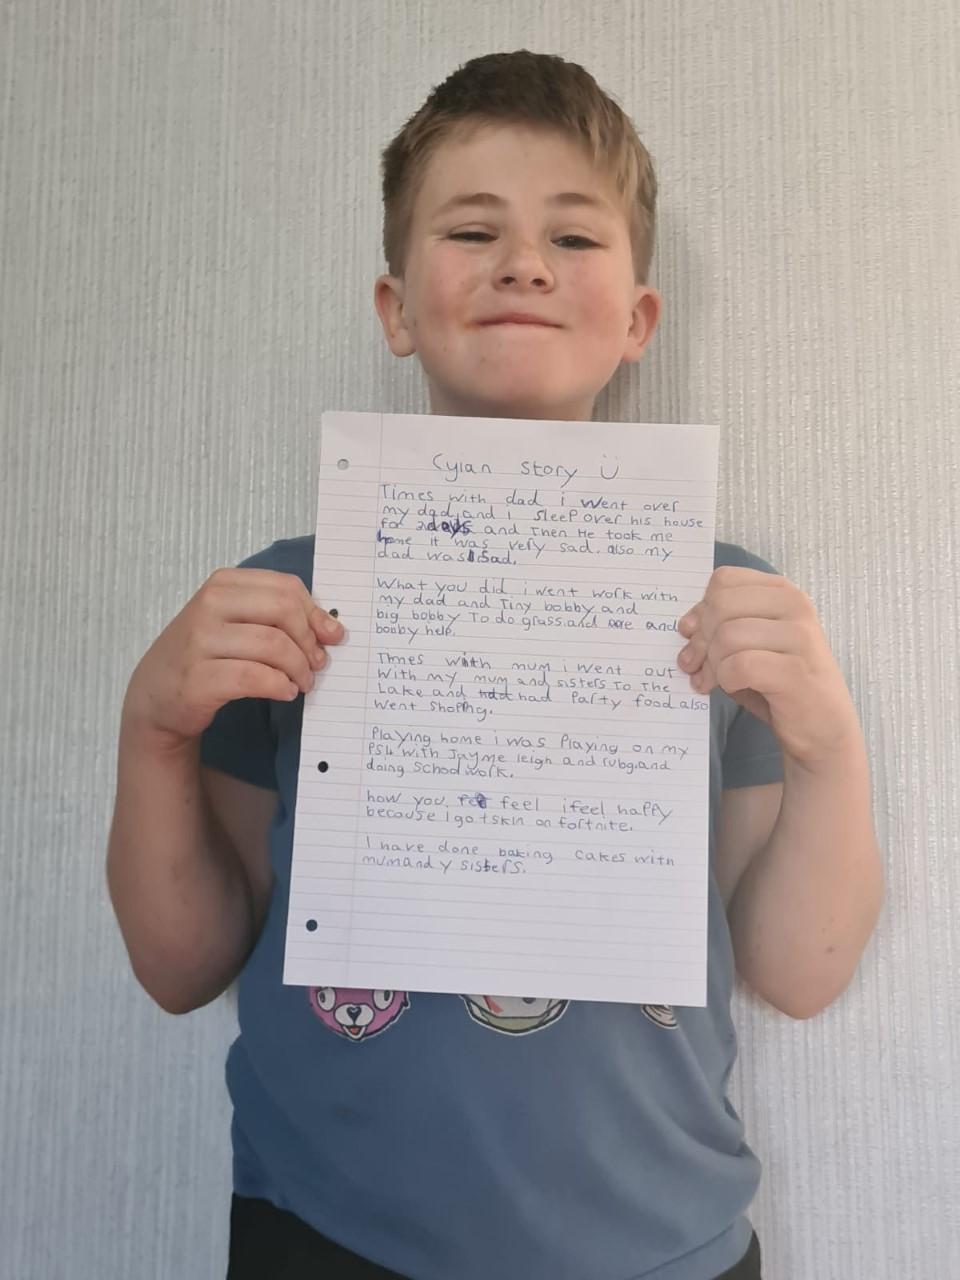 Cyian Story Ü
Times with dad i went over
my dad, and i sleep over his house
for 2 days and Then He took me
home it was very sad. also my
dad was Sad.
What you did i went work with
my dad and Tiny bobby and
big bobby To do grass. and and
booby help.
Times with mum i went out
with my mum and sisters To The
Lake and had Party food also
went shopping.
Playing home i was Playing on my
PS4 with Jayme leigh and ruby. and
doing School work.
how you feel i feel happy
because I got skin on fortnite.
I have done baking cakes with
mum and y sisters.